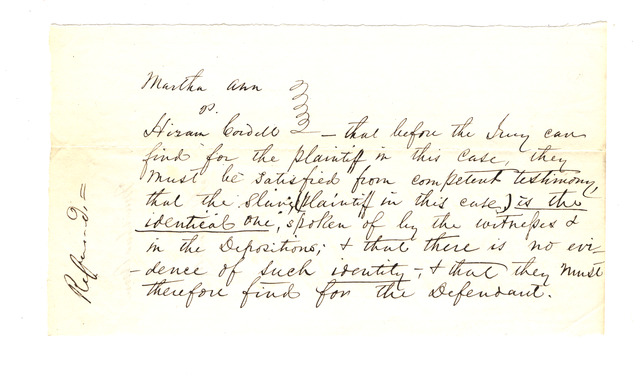 Martha Ann
vs.
Hiram Cordell — that before the Jury can
find for the plaintiff in this case, they
must be satisfied from competent testimony,
that the slave, (plaintiff in this case,) is the
identical one, spoken of by the witnesses &
in the Depositions; & that there is no evi-
-dence of such identity — & that they must
therefore find for the Defendant.
Refused =